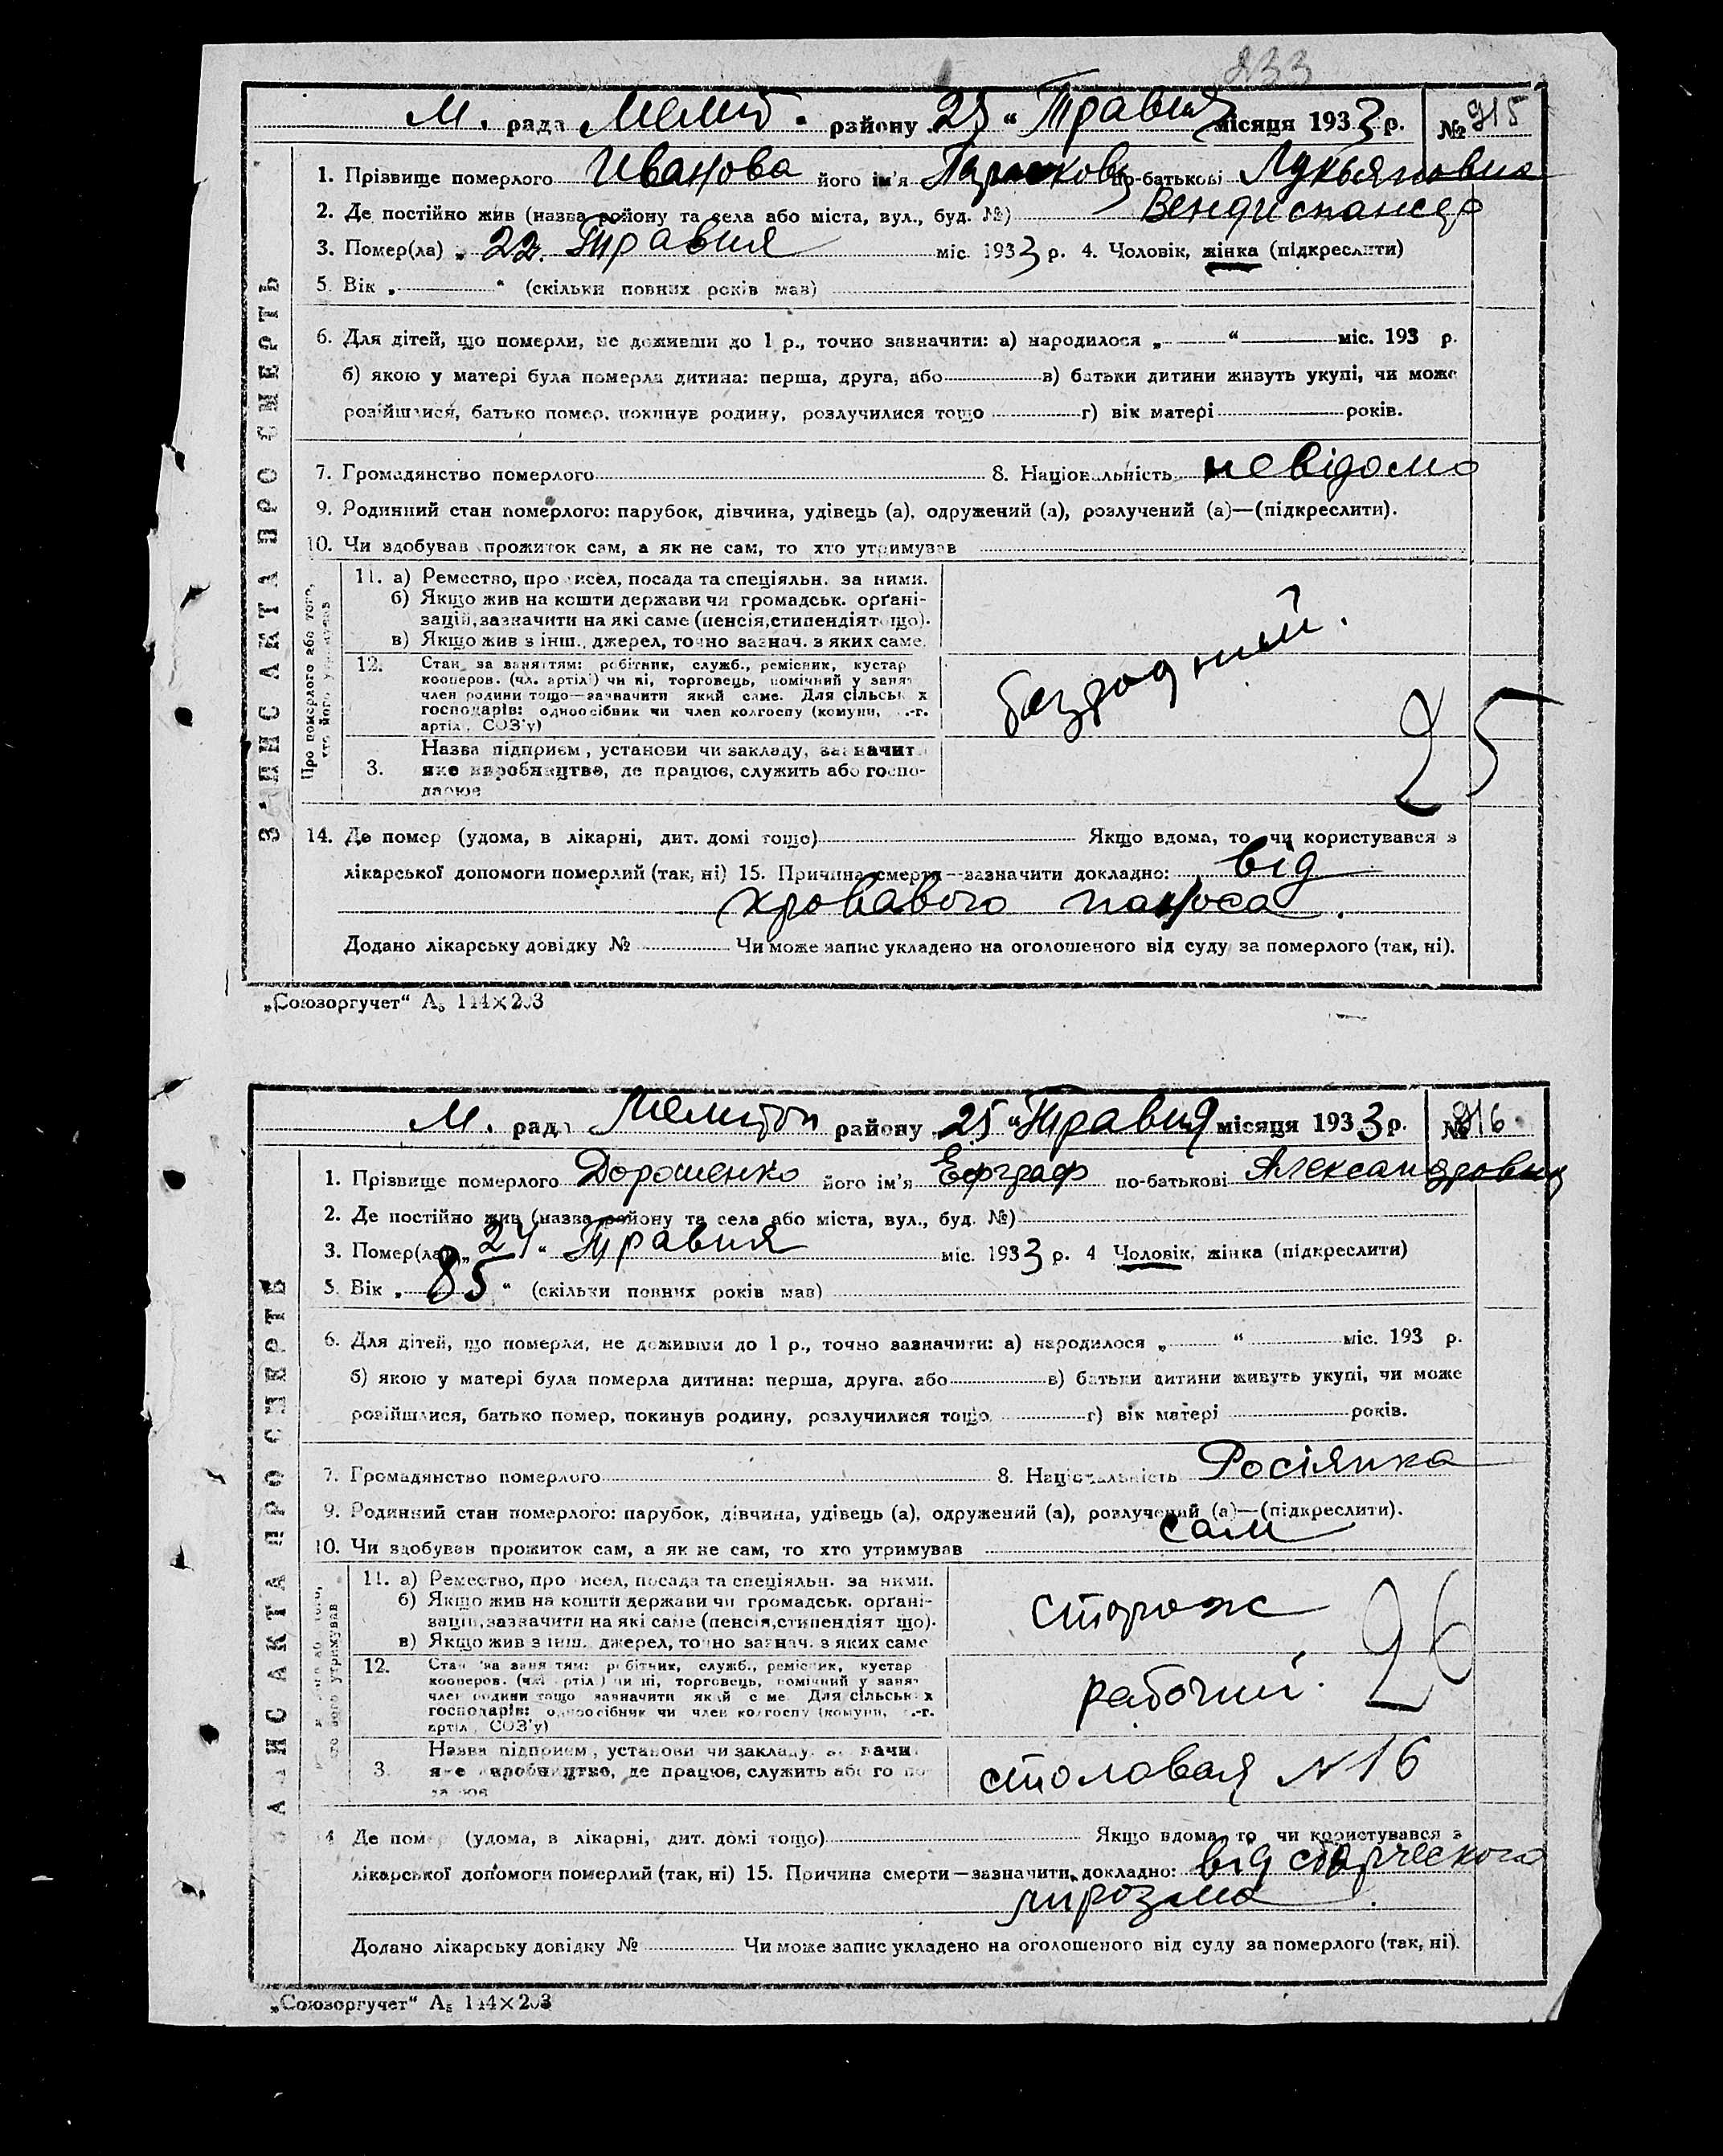 233
М. рада Меліт. району 25 „ Травня місяця 1933 р. № 915
ЗАПИС АКТА ПРО СМЕРТЬ
1. Прізвище померлого Иванова його ім'я Парасковія по-батькові Лукьяновна
2. Де постійно жив (назва району та села або міста, вул., буд. №) Вендиспансер
3. Помер(ла) „ 22. Травня міс. 1933 р. 4. Чоловік, жінка (підкреслити)
5. Вік „ “ (скільки повних років мав)
6. Для дітей, що померли, не доживши до 1 р., точно зазначити: а) народилося „ “ міс. 193 р.
б) якою у матері була померла дитина: перша, друга, або в) батьки дитини живуть укупі, чи може
розійшлися, батько помер, покинув родину, розлучилися тощо г) вік матері років.
7. Громадянство померлого 8. Національність невідомо
9. Родинний стан померлого: парубок, дівчина, удівець (а), одружений (а), розлучений (а)—(підкреслити).
10. Чи здобував прожиток сам, а як не сам, то хто утримував
Про померлого або того, хто його утримував
11. а) Ремество, промисел, посада та спеціяльн. за ними.
б) Якщо жив на кошти держави чи громадськ. орґані-
зацій, зазначити на які саме (пенсія, стипендія тощо).
в) Якщо жив з інш. джерел, точно зазнач. з яких саме.
безродний.
12. Стан за заняттям: робітник, служб., ремісник, кустар
кооперов. (чл. артілі) чи ні, торговець, помічний у занят
член родини тощо—зазначити який саме. Для сільськ х
господарів: одноосібник чи член колгоспу (комуни, .-г.
артілі, СОЗ'у)
25
3. Назва підприєм., установи чи закладу, зазначит
яке виробництво, де працює, служить або госпо-
дарює
14. Де помер (удома, в лікарні, дит. домі тощо) Якщо вдома, то чи користувався з
лікарської допомоги померлий (так, ні) 15. Причина смерти—зазначити докладно: від
кровавого поноса.
Додано лікарську довідку № Чи може запис укладено на оголошеного від суду за померлого (так, ні).
„Союзоргучет“ А5 144×203
М. рада Мелітоп району 25 „ Травня місяця 1933 р. № 916
ЗАПИС АКТА ПРО СМЕРТЬ
1. Прізвище померлого Дорошенко його ім'я Ефграф по-батькові Александрович
2. Де постійно жив (назва району та села або міста, вул., буд. №)
3. Помер(ла) „ 24 “ Травня міс. 1933 р. 4 Чоловік, жінка (підкреслити)
5. Вік „ 85 “ (скільки повних років мав)
6. Для дітей, що померли, не доживши до 1 р., точно зазначити: а) народилося „ “ міс. 193 р.
б) якою у матері була померла дитина: перша, друга, або в) батьки дитини живуть укупі, чи може
розійшлися, батько помер, покинув родину, розлучилися тощо г) вік матері років.
7. Громадянство померлого 8. Національність Росіянка
9. Родинний стан померлого: парубок, дівчина, удівець (а), одружений (а), розлучений (а)—(підкреслити).
10. Чи здобував прожиток сам, а як не сам, то хто утримував сам
11. а) Ремество, промисел, посада та спеціяльн. за ними.
б) Якщо жив на кошти держави чи громадськ. орґані-
зацій, зазначити на які саме (пенсія, стипендія тощо).
в) Якщо жив з інш. джерел, точно зазнач. з яких саме
сторож
26
12. Стан за заняттям: робітник, служб., ремісник, кустар
кооперов. (чл. артілі) чи ні, торговець, помічний у занят
член родини тощо зазначити який саме Для сільськ х
господарів: одноосібник чи член колгоспу (комуни, .-г.
артілі, СОЗ'у)
рабочий.
3. Назва підприєм., установи чи закладу, зазначи
яке виробництво, де працює, служить або госпо
дарює
столовая №16
14 Де помер (удома, в лікарні, дит. домі тощо) Якщо вдома, то чи користувався з
лікарської допомоги померлий (так, ні) 15. Причина смерти—зазначити докладно: від старческого
Додано лікарську довідку № Чи може запис укладено на оголошеного від суду за померлого (так, ні).
„Союзоргучет“ А5 144×203